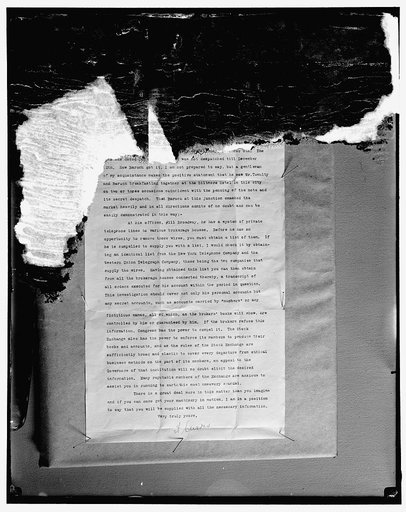 was not despatched till December
20th. How Baruch got it, I am not prepared to say, but a gentleman
of my acquaintance makes the positive statement that he saw Mr. Tumulty
and Baruch breakfasting together at the Biltmore Hotel in this city
on two or three occasions coincident with the penning of the note and
its secret despatch. That Baruch at this juncture smashed the
market heavily and in all directions admits of no doubt and can be
easily demonstrated in this way:-
At his office, 111 Broadway, he has a system of private
telephone lines to various brokerage houses. Before he has an
opportunity to remove these wires, you must obtain a list of them. If
he is compelled to supply you with a list, I would check it by obtain-
ing an identical list from the New York Telephone Company and the
Western Union Telegraph Company, these being the two companies that
supply the wires. Having obtained this list you can then obtain
from all the brokerage houses connected thereby, a transcript of
all orders executed for his account within the period in question.
This investigation should cover not only his personal accounts but
any secret accounts, such as accounts carried by "numbers" or any
fictitious names, all of which, as the brokers' books will show, are
controlled by him or guaranteed by him. If the brokers refuse this
information, Congress has the power to compel it. The Stock
Exchange also has the power to enforce its members to produce their
books and accounts, and as the rules of the Stock Exchange are
sufficiently broad and elastic to cover every departure from ethical
business methods on the part of its members, an appeal to the
Governors of that institution will no doubt elicit the desired
information. Many reputable members of the Exchange are anxious to
assist you in running to earth this most unsavory scandal.
There is a great deal more in this matter than you imagine
and if you can once get your machinery in motion, I am in a position
to say that you will be supplied with all the necessary information.
Very truly yours,